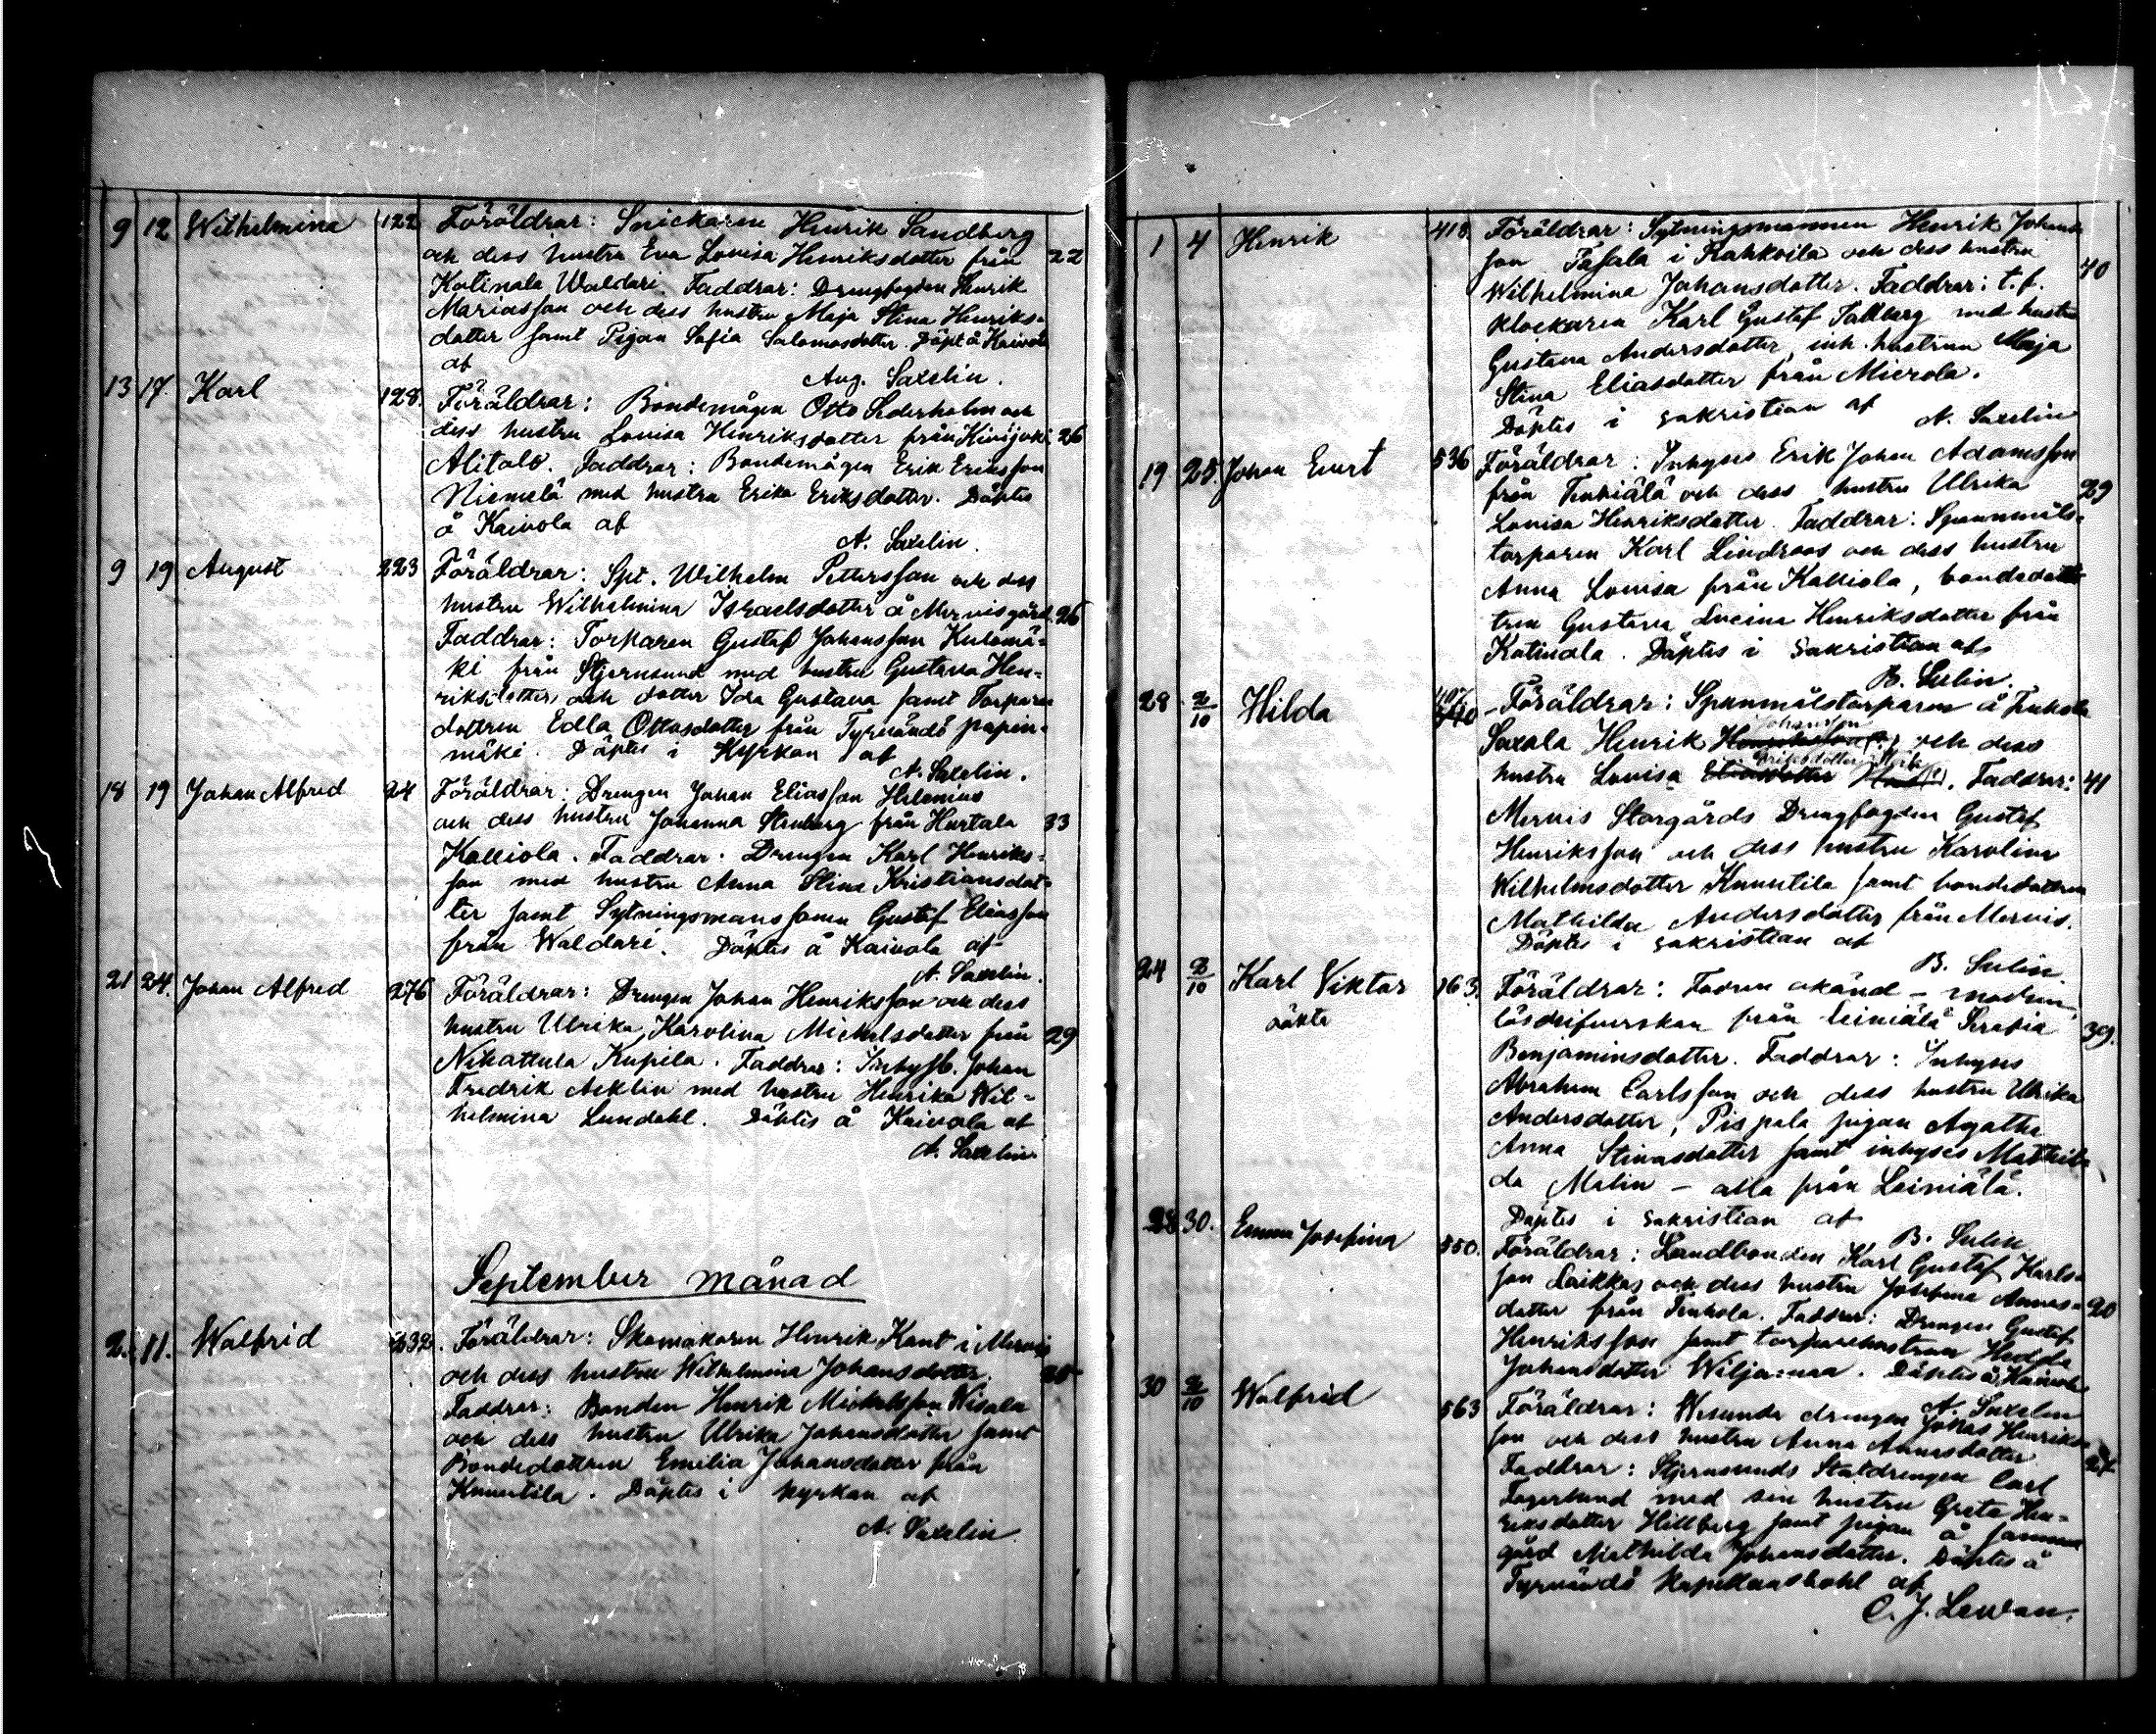 9 12 Wilhelmina 122 Föräldrar: Snickaren Henrik Sandberg
och dess hustru Eva Lovisa Henriksdotter från 22
Katinala Waldari. Faddrar: Drengfogden Henrik
Mariasson och dess hustru Maja Stina Henriks-
dotter samt Pigan Sofia Salomosdotter. Döpt å Kaivola
af
Aug. Saxelin.
13 17. Karl 128. Föräldrar: Bondemågen Otto Sederholm och
dess hustru Lovisa Henriksdotter från Kinijoki 26
Alitalo. Faddrar: Bondemågen Erik Eriksson
Niemelä med hustru Erika Eriksdotter. Döptes
å Kaivola af
A. Saxelin.
9 19 August 223 Föräldrar: Spt. Wilhelm Pettersson och dess
hustru Wilhelmina Israelsdotter å Mervisgård. 26
Faddrar: Torparen Gustaf Johansson Kulomä-
ki från Stjernsund med hustru Gustava Hen-
riksdotter och dotter Ida Gustava samt Torpare
dottren Edla Ottosdotter från Tyrvändö papin-
mäki. Döptes i Kyrkan af
A. Saxelin.
18 19 Johan Alfred 24 Föräldrar: Drengen Johan Eliasson Helenius
och dess hustru Johanna Stenberg från Hurtala 33
Kalliola. Faddrar. Drengen Karl Henriks-
son med hustru Anna Stina Kristiansdot-
ter samt Sytningsmanssonen Gustaf Eliasson
från Waldari. Döptes å Kaivola af
A. Saxelin.
21 24. Johan Alfred 276 Föräldrar: Drengen Johan Henriksson och dess
hustru Ulrika Karolina Michelsdotter från 29
Nihattula Kupila. Faddrar: Inhys. Johan
Fredrik Acklin med hustru Henrika Wil-
helmina Lundahl. Döptes å Kaivola af
A. Saxelin
September månad
2. 11. Walfrid 232. Föräldrar: Skomakaren Henrik Kant i Mervis
och dess hustru Wilhelmina Johansdotter.
Faddrar: Bonden Henrik Mickelsson Wisala
och dess hustru Ulrika Johansdotter samt
Bondedottren Emilia Johansdotter från
Knuutila. Döptes i kyrkan af
A. Saxelin
1 4 Henrik 418. Föräldrar: Sytningsmannen Henrik Johans-
son Tafala i Rahkoila och dess hustru 40
Wilhelmina Johansdotter. Faddrar: t.f.
Klockaren Karl Gustaf Tallberg med hustru
Gustava Andersdotter, inh. hustrun Maja
Stina Eliasdotter från Mierola.
Döptes i sakristian af
A. Saxelin
19 25. Johan Evert 536 Föräldrar: Inhyses Erik Johan Adamsson
från Tenhiälä och dess hustru Ulrika 29
Lovisa Henriksdotter. Faddrar: Spanmåls-
torparen Karl Lindroos och dess hustru
Anna Lovisa från Kalliola, bondedot-
tren Gustava Lucina Henriksdotter från
Katinala. Döptes i Sakristian af
B. Selin.
28 2/10 Hilda Föräldrar: Spanmålstorparen å Tenhola
Saxala Henrik Johansson och dess
hustru Lovisa Eriksdotter. Faddrar: 41
Mervis Storgårds Drengfogden Gustaf
Henriksson och dess hustru Karolina
Wilhelmsdotter Knuutila samt bondedottren
Mathilda Andersdotter från Mervis.
Döptes i sakristian af
B. Selin
24 2/10 Karl Viktor 163. Föräldrar: Fadren okänd – modren
oäkta lösdrifverskan från Leiniälä Serafia 39.
Benjaminsdotter. Faddrar: Inhyses
Abraham Carlsson och dess hustru Ulrika
Andersdotter, Pispala pigan Agatha
Anna Stinasdotter samt inhyses Mathil-
da Malin – alla från Leiniälä.
Döptes i sakristian af
B. Selin
28 30. Emma Josefina 550. Föräldrar: Landbonden Karl Gustaf Karls-
son Laikkas och dess hustru Josefina Annas- 20
dotter från Tenhola. Faddrar: Drengen Gustaf
Henriksson samt torparehustrun Hedda
Johansdotter Wiljamaa. Döptes å Kaivola
A. Saxelin
30 2/10 Walfrid 563 Föräldrar: Wesunda drengen Jonas Henriks-
son och dess hustru Anna Annasdotter 27
Faddrar: Stjernsunds Staldrengen Carl
Fagerlund med sin hustru Greta Hen-
riksdotter Hillberg samt pigan å samma
gård Mathilda Johansdotter. Döptes å
Tyrvändö Kapellansbohl af
C. J. Lewan.